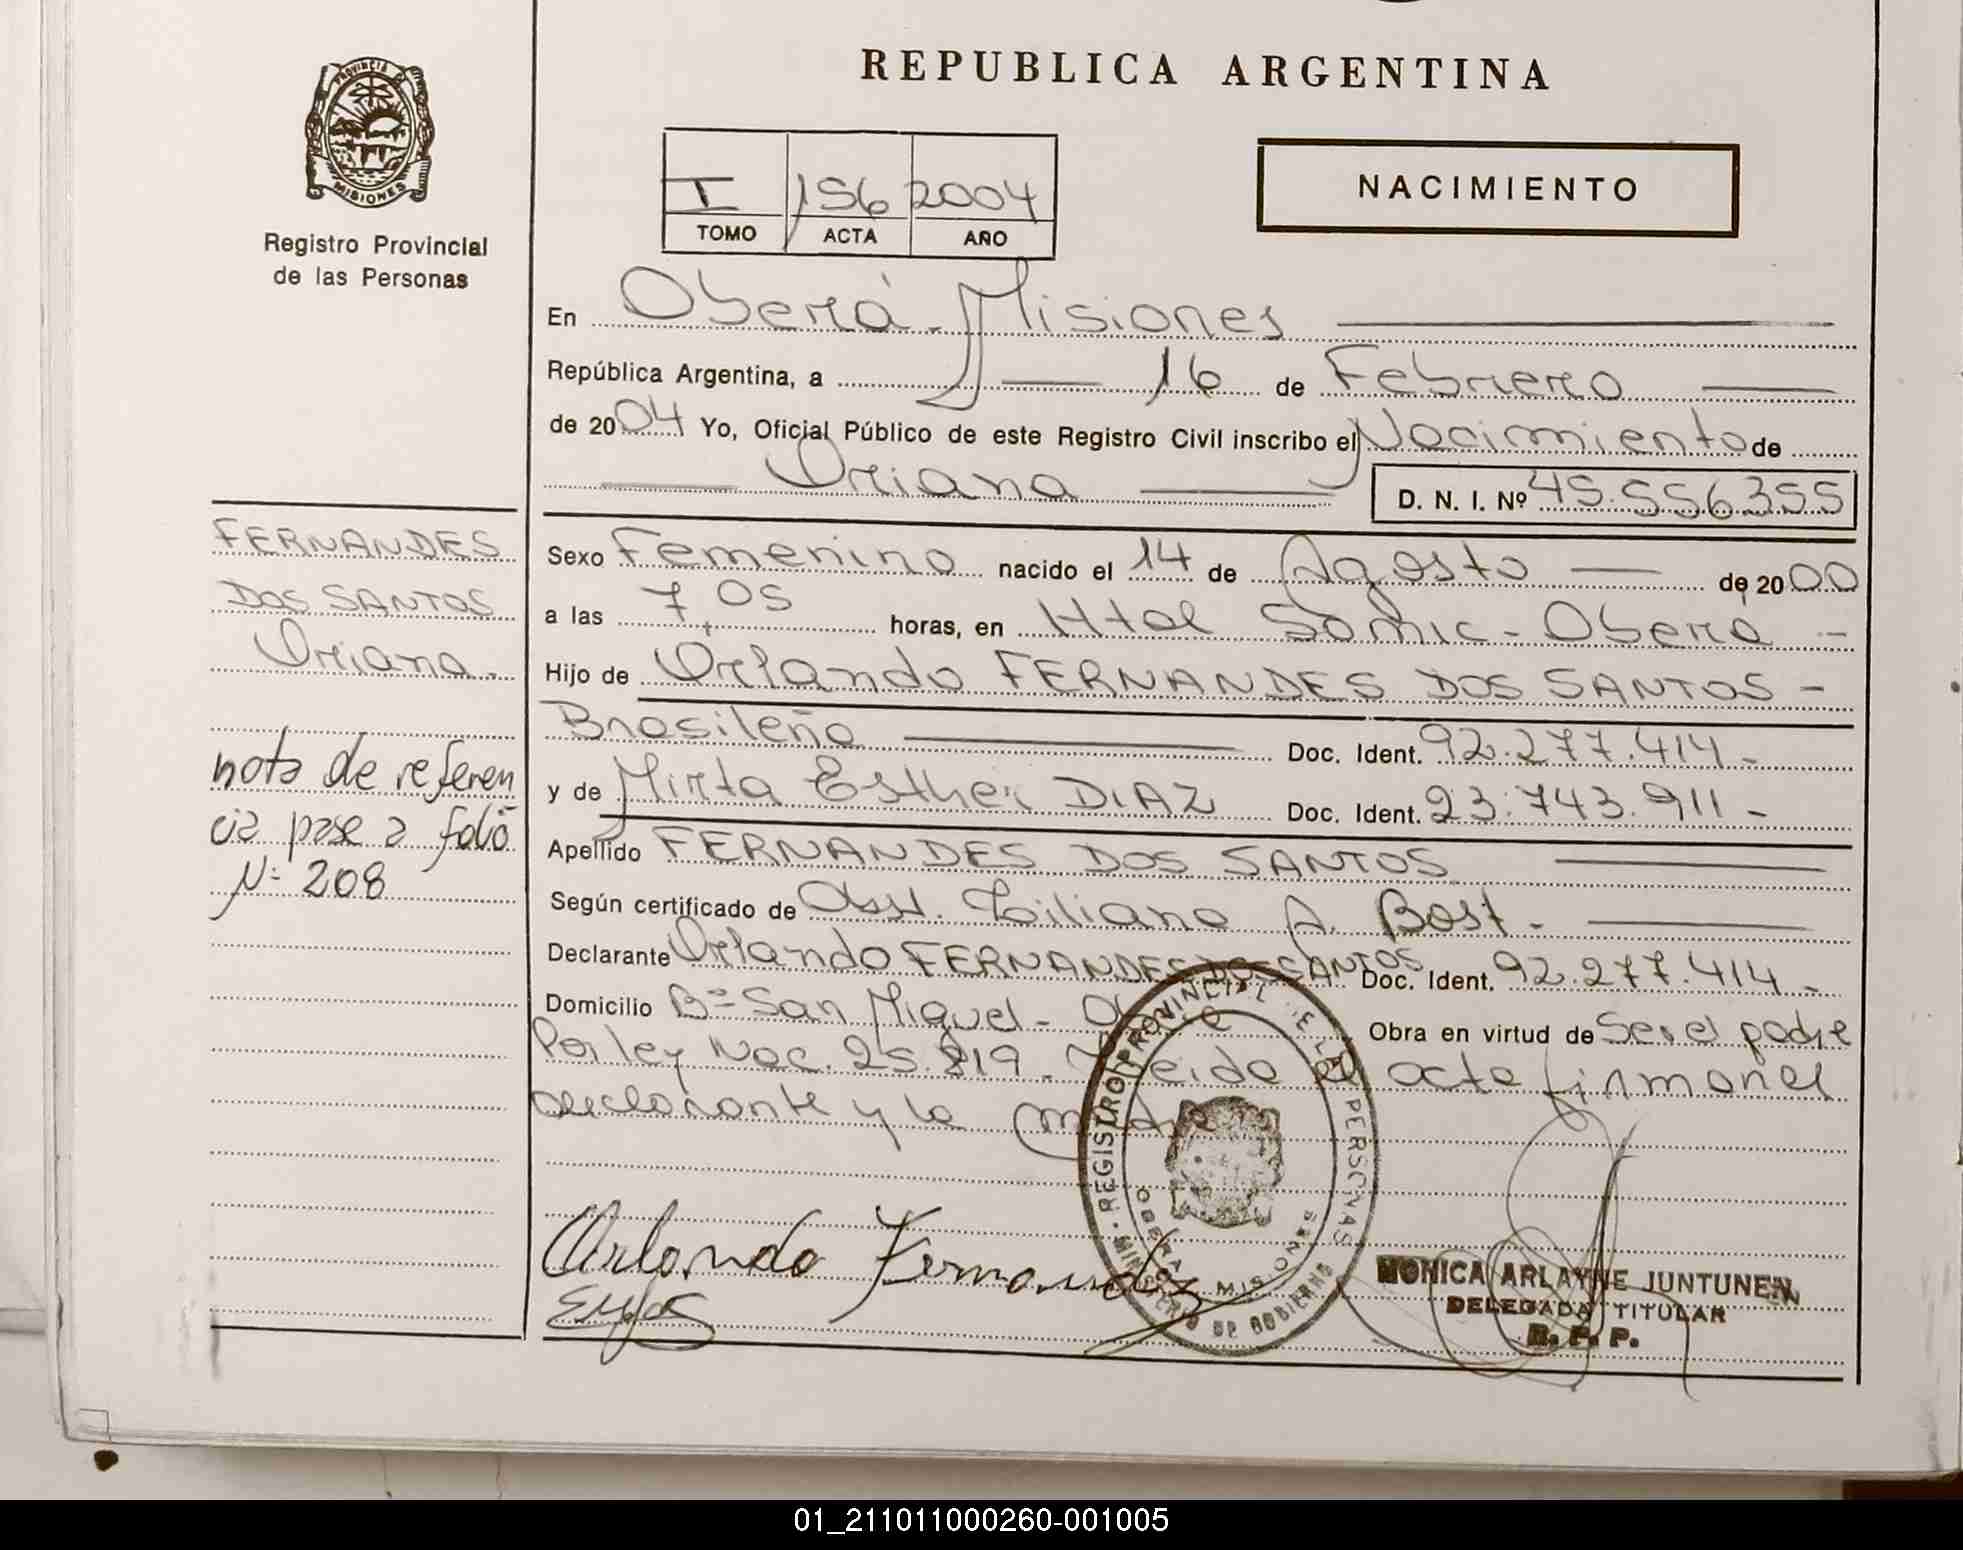 REPUBLICA ARGENTINA
PROVINCIA
MISIONES
Registro Provincial
de las Personas
I 156 2004
TOMO ACTA AÑO
NACIMIENTO
En Oberá - Misiones
República Argentina, a 16 de Febrero
de 2004 Yo, Oficial Público de este Registro Civil inscribo el Nacimiento de
Oriana D. N. I. Nº 45.556355
FERNANDES
DOS SANTOS
Oriana.
nota de referen
cia pase a folio
Nº 208
Sexo Femenino nacido el 14 de Agosto de 2000
a las 7,05 horas, en Htal Samic - Oberá -
Hijo de Orlando FERNANDES DOS SANTOS -
Brasileño Doc. Ident. 92.277.414 -
y de Mirta Esther DIAZ Doc. Ident. 23.743.911 -
Apellido FERNANDES DOS SANTOS
Según certificado de Obst. Liliana A. Bost -
Declarante Orlando FERNANDES DOS SANTOS Doc. Ident. 92.277.414 -
Domicilio Bº San Miguel - Obra en virtud de Ser el padre
Por ley Nac. 25.819. Leida el acta firman el
declarante y la madre
REGISTRO PROVINCIAL DE LAS PERSONAS
MINISTERIO DE GOBIERNO
OBERA MISIONES
Orlando Fernandez
MONICA ARLAYNE JUNTUNEN
DELEGADA TITULAR
R. P. P.
01_211011000260-001005